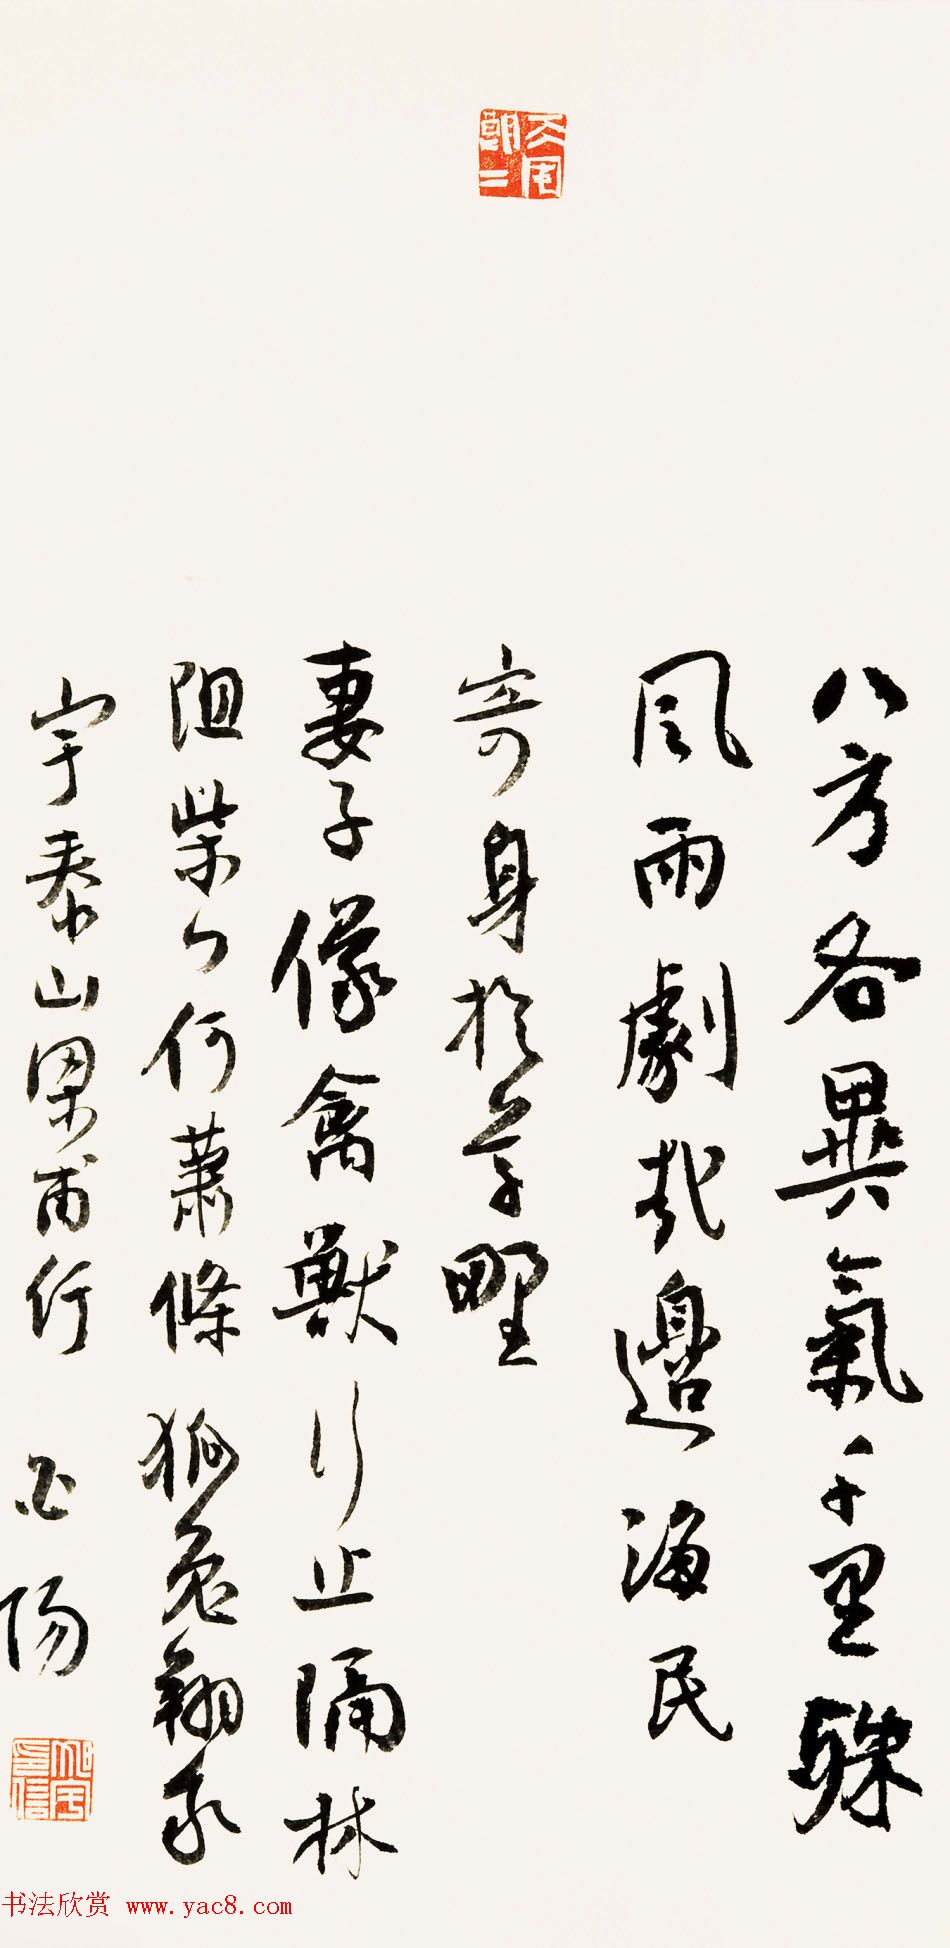 八方各異氣千里殊
風雨劇哉邊海民
寄身於草野
妻子像禽獸行止隔林
阻柴門何蕭條狐兔翔我
宇泰山梁甫行 白陽
书法欣赏 www.yac8.com